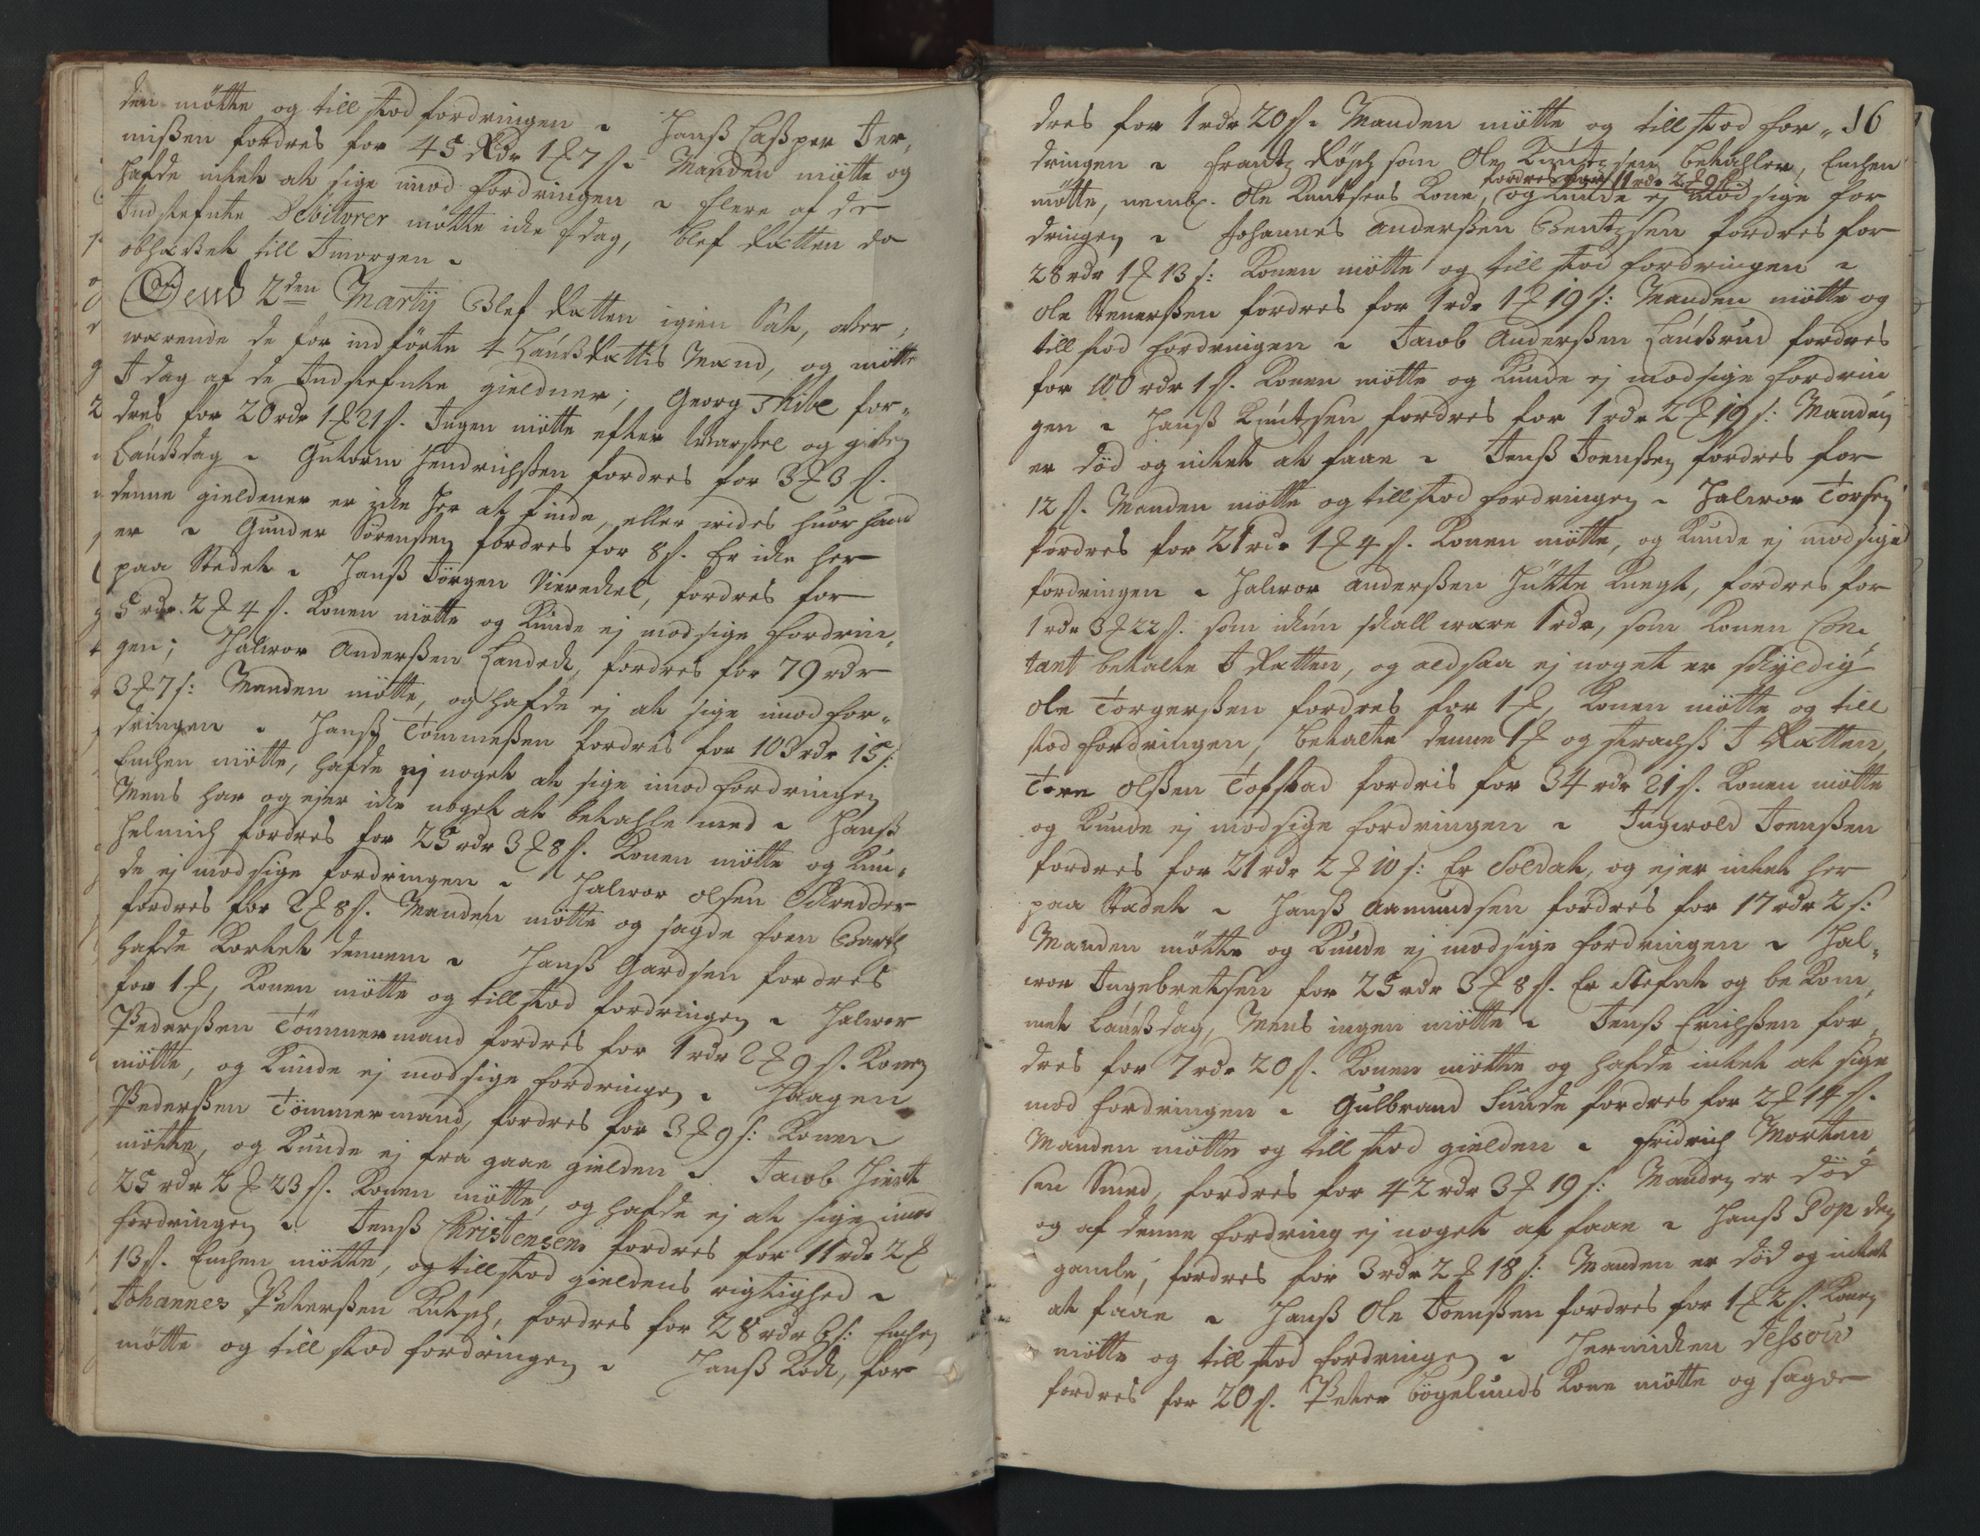 den mötte og till stod fordringen - Hanß Caßper Jer„
mißen fordres for 45 Rdr 1 ꝑ 7 ſ. Manden mötte og
hafde intet at sige imod fordringen - flere af de
Indstefnte Debitorer mötte icke I dag, blef Rætten da
ophæßet till Imorgen -
Dend 2den Martij Blef Rætten igien Sat, ofver„
værende de for indförte 4 Laúgß Rættis Mænd, og mötte
I dag af de Indstefnte gieldner; Georg Thibe for„
dres for 20 rdr 1 ꝑ 21 ſ. Ingen mötte efter warßel og given
Laúgdag - Gutorm Hendrichßen fordres for 3 ꝑ 3 ſ.
denne gieldener er icke her at finde, eller vides huor hand
er - Gunder Sörensßen fordres for 8 ſ. Er icke her
paa Stedet - Hanß Jörgen Viereckel, fordres for
5 rdr. 2 ꝑ 4 ſ. Konen mötte og Kúnde ej modsige fordrin„
gen; Halwor Anderßen Landeck, fordres for 79 rdr
3 ꝑ 7 ſ: Manden mötte, og hafde ej at sige imod for„
dringen - Hanß Tommeßen fordres for 103 rdr 15 ſ:
Enchen mötte, hafde ej noget at sige imod fordringen
Mens har og ejer icke noget at betahle med - Hanß
Helmich fordres for 25 rdr 3 ꝑ 8 ſ. Konen mötte og Kún„
de ej modsige fordringen - Halwor olsen Schredder
fordres for 2 ꝑ 8 ſ. Manden mötte og sagde foen Bartz
hafde Kortet dennem - Hanß Gardsen fordres
for 1 ꝑ, Konen mötte og tillstod fordringen - Halwor
Pederßen Tömmermand fordres for 1 rdr 2 ꝑ 9 ſ. Konen
mötte, og Kúnde ej modsige fordringen - Haagen
Pederßen Tömmermand, fordres for 3 ꝑ 9 ſ: Konen
mötte, og Kúnde ej fra gaae gielden - Jacob Hiort
25 rdr 2 ꝑ 23 ſ. Konen mötte, og hafde ej at sige imod
fordringen - Jenß Christensen fordres for 11 rdr 2 ꝑ
13 ſ. Enchen mötte, og tillstod gieldens rigtighed -
Johannes Peterßen Kútsch, fordres for 28 rdr 6 ſ: Enchen
mötte og till stod fordringen - Hanß Kock, for
16
dres for 1 rdr 20 ſ. Manden mötte og till stod for„
dringen - frantz Rösch som Ole Kúntzsen betaller, Enchen
fordres for 11 rdr 2 ꝑ 9 ſ.
mötte, nembl. Ole Kuntsens Kone, og kúnde ej mod sige for
dringen - Johannes anderßen Bentzsen fordres for
28 rdr 1 ꝑ 13 ſ: Konen mötte og till stod fordringen -
Ole Stenerßen fordres for 1 rdr 1 ꝑ 19 ſ: Manden mötte og
till stod fordringen - Jacob Anderßen Laúßrud fordres
for 100 rdr 1 ſ. Konen mötte og Kunde ej modsige fordrin
gen - Hanß Kúntzsen fordres for 1 rdr 2 ꝑ 19 ſ: Manden
er död og intet at faae - Jenß Joenßen fordres for
12 ſ. Manden mötte og till stod fordringen - Halwor Torsen
fordres for 21 rdr 1 ꝑ 4 ſ. Konen mötte, og Kunde ej modsige
fordringen - Halwor anderßen Hütte Knegt, fordres for
1 rdr 3 ꝑ 22 ſ. som ickún skall wære 1 rdr, som Konen Con„
tant betalte I Rætten, og altsaa ej noget er skyldig
Ole Torgerßen fordres for 1 ꝑ, Konen mötte og till
stod fordringen, betalte denne 1 ꝑ og strachß I Rætten,
Tore olßen Tofstad fordris for 34 rdr 21 ſ. Konen mötte
og Kunde ej modsige fordringen - Ingwold Joenßen
fordres for 21 rdr 2 ꝑ 10 ſ: Er Soldat, og ejer intet her
paa Stedet - Hanß Aamundsen fordres for 17 rdr 2 ſ:
Manden mötte og Kunde ej modsige fordringen - Hal„
wor Ingebretsen for 25 rdr 3 ꝑ 8 ſ. Er stefnt og bekom„
met Laúgdag, Mens ingen mötte - Jenß Erichßen for„
dres for 7 rdr 20 ſ. Konen mötte og hafde intet at sige
mod fordringen - Gulbrand Sunde fordres for 2 ꝑ 14 ſ.
Manden mötte og till stod gielden - fridrich Morten„
sen Smed, fordres for 42 rdr 3 ꝑ 19 ſ: Manden er död
og af denne fordring ej noget at faae - Hanß Pop den
gamle, fordres for 3 rdr 2 ꝑ 18 ſ: Manden er död og intet
at faae - Hanß Ole Joenßen fordres for 1 ꝑ 2 ſ. Konen
mötte og till stod fordringen - Hermichen Jesßoúv
fordres for 20 ſ. Peter bögelunds Kone mötte og sagde